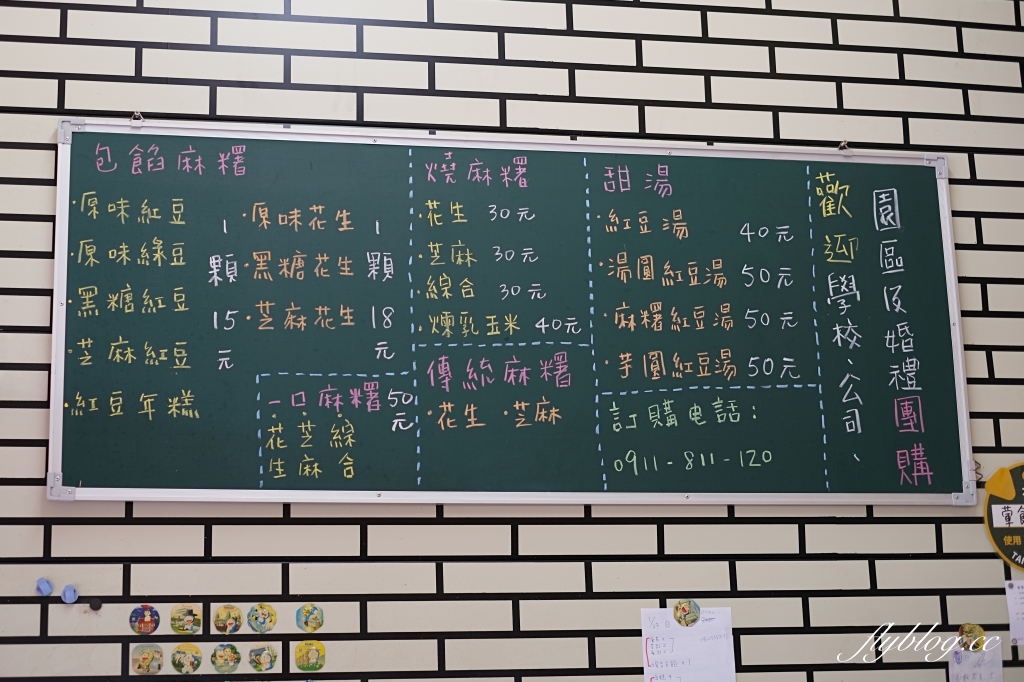 包餡麻糬
·原味紅豆
·原味綠豆
·黑糖紅豆
·芝麻紅豆
·紅豆年糕
1顆15元
·原味花生
·黑糖花生
·芝麻花生
1顆18元
一口麻糬50元
·花生
·芝麻
·綜合
燒麻糬
·花生 30元
·芝麻 30元
·綜合 30元
·煉乳玉米 40元
傳統麻糬
·花生 ·芝麻
甜湯
·紅豆湯 40元
·湯圓紅豆湯 50元
·麻糬紅豆湯 50元
·芋圓紅豆湯 50元
訂購电話:
0911-811-120
歡迎學校、公司、
園區及婚禮團購
使用
flyblog.cc